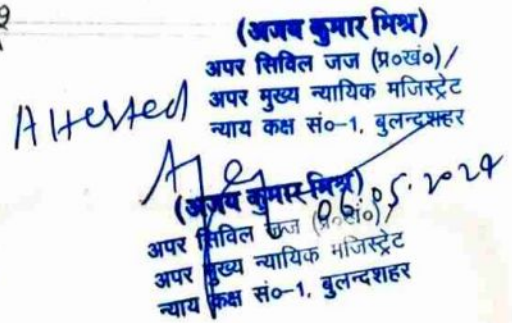 (अजय कुमार मिश्र)
अपर सिविल जज (प्र०खं०)/
अपर मुख्य न्यायिक मजिस्ट्रेट
न्याय कक्ष सं०-1, बुलन्दशहर
Attested
(अजय कुमार मिश्र)
06.05.2024
अपर सिविल जज (प्र०खं०)/
अपर मुख्य न्यायिक मजिस्ट्रेट
न्याय कक्ष सं०-1, बुलन्दशहर